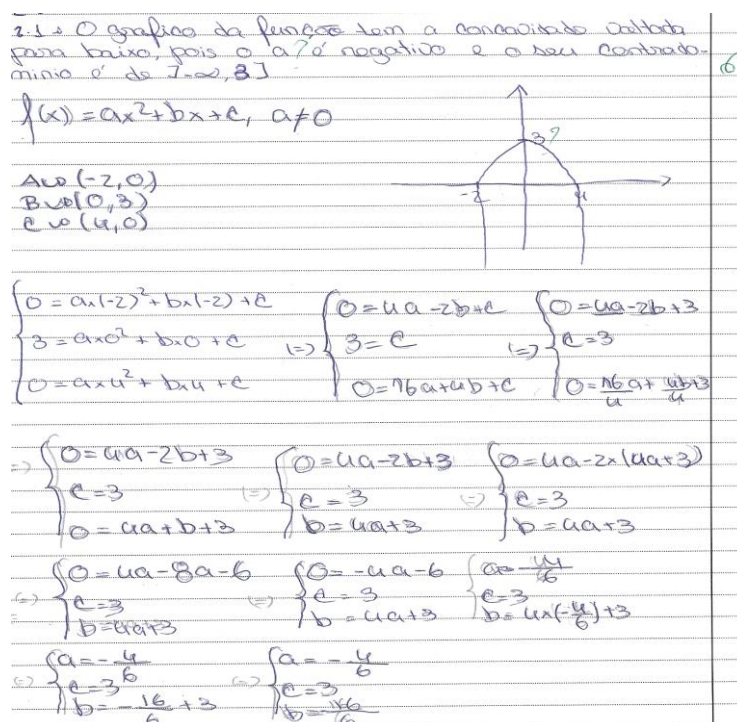 2.1. O grafico da função tem a concavidade voltada
para baixo, pois o a? é negativo e o seu contrado-
minio é de ]-∞, 3]
6
f(x) = ax² + bx + c, a ≠ 0
3?
-2
4
A → (-2, 0)
B → (0, 3)
C → (4, 0)
{ 0 = a×(-2)² + b×(-2) + c
3 = a×0² + b×0 + c
0 = a×4² + b×4 + c
(=) { 0 = 4a - 2b + c
3 = c
0 = 16a + 4b + c
(=) { 0 = 4a - 2b + 3
c = 3
0 = 16a/4 + 4b/4 + 3
(=) { 0 = 4a - 2b + 3
c = 3
0 = 4a + b + 3
(=) { 0 = 4a - 2b + 3
c = 3
b = 4a + 3
(=) { 0 = 4a - 2×(4a + 3)
c = 3
b = 4a + 3
(=) { 0 = 4a - 8a - 6
c = 3
b = 4a + 3
(=) { 0 = -4a - 6
c = 3
b = 4a + 3
{ a = -4/6
c = 3
b = 4×(-4/6) + 3
(=) { a = -4/6
c = 3
b = -16/6 + 3
(=) { a = -4/6
c = 3